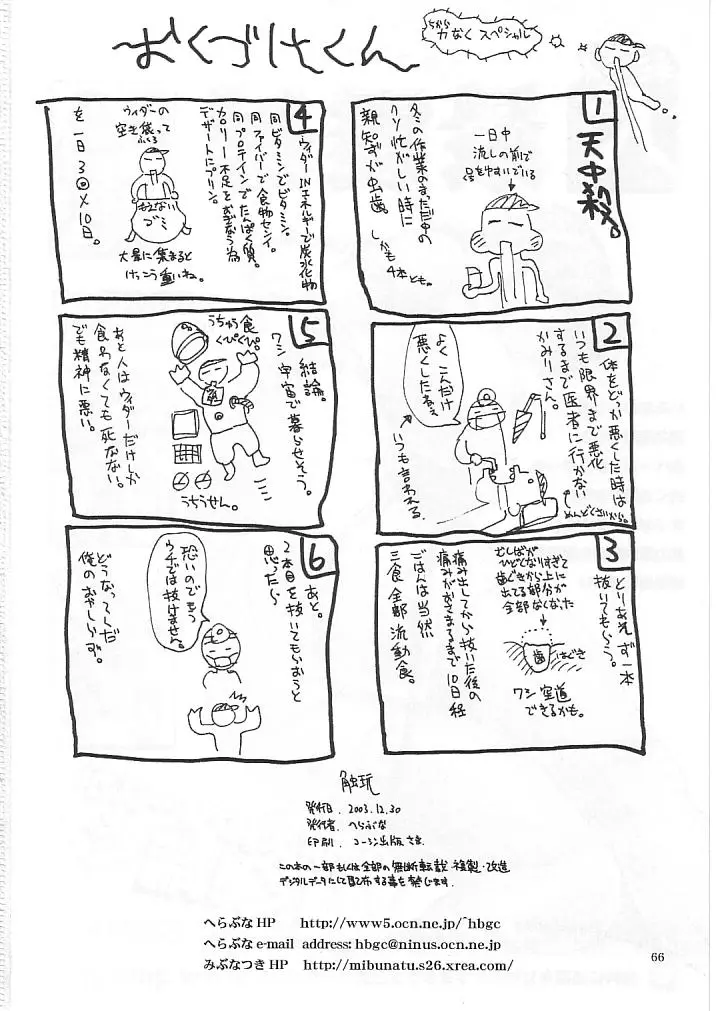 おくづけくん
ちから
力なくスペシャル
1
天中殺。
一日中
流しの前で
口をゆすいでいる
冬の作業のまっただ中の
クソ忙がしい時に
親知らずが虫歯。
しかも4本とも。
2
体をどっか悪くした時は
いつも限界まで悪化
するまで医者に行かない
かみりさん。
めんどくさいから。
よくこんだけ
悪くしたねぇ
いつも言われる。
3
とりあえず一本
抜いてもらう。
むしばが
ひどくなりすぎて
歯ぐきから上に
出てる部分が
全部なくなった
歯
はぐき
ワシ空道
できるかも。
痛み出してから抜いた後の
痛みがおさまるまで10日程
ごはんは当然
三食全部流動食。
4
ウィダーINエネルギーで炭水化物
同ビタミンでビタミン。
同ファイバーで食物センイ。
同プロテインでたんぱく質。
カロリー不足をおぎなう為
デザートにプリン。
ウィダーの
空き袋って
もえない
ゴミ
大量に集まると
けっこう重いね。
を一日3回×10日。
5
結論。
ワシ宇宙で暮らせそう。
うちゅう食
くぴくぴ。
うちうせん。
あと人はウィダーだけしか
食わなくても死なない。
でも精神に悪い。
6
あと。
2本目を抜いてもらおうと
思ったら
恐いのでもう
ウチでは抜けません。
どうなってんだ
俺のおやしらず。
触玩
発行日. 2003.12.30
発行者. へらぶな
印刷. コーシン出版さま
この本の一部もしくは全部の無断転載・複製・改造
デジタルデータにして配布する事を禁じます.
へらぶなHP http://www5.ocn.ne.jp/~hbgc
へらぶなe-mail address: hbgc@ninus.ocn.ne.jp
みぶなつきHP http://mibunatu.s26.xrea.com/
66